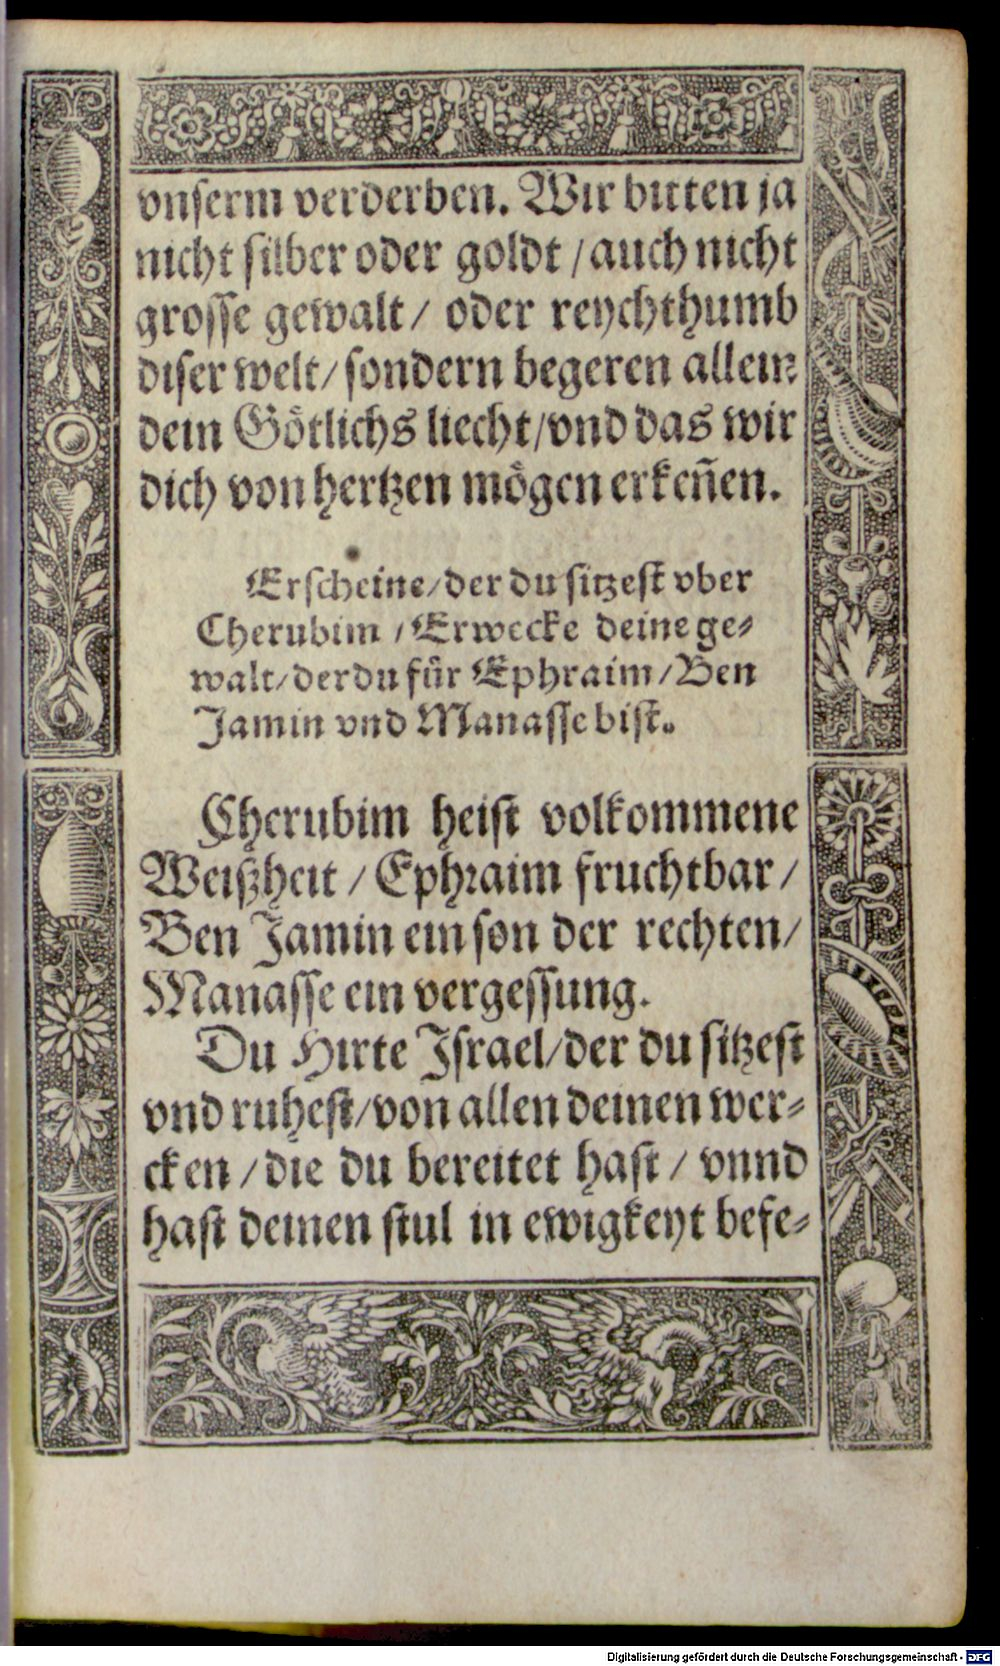 vnserm verderben. Wir bitten ja
nicht silber oder goldt / auch nicht
grosse gewalt / oder reychthumb
diser welt / sondern begeren allein
dein Götlichs liecht / vnd das wir
dich von hertzen mögen erkeñen.
Erscheine / der du sitzest vber
Cherubim / Erwecke deine ge⸗
walt / der du für Ephraim / Ben
Jamin vnd Manasse bist.
Cherubim heist volkommene
Weißheit / Ephraim fruchtbar /
Ben Jamin ein son der rechten /
Manasse ein vergessung.
Du Hirte Israel / der du sitzest
vnd ruhest / von allen deinen wer⸗
cken / die du bereitet hast / vnnd
hast deinen stul in ewigkeyt befe⸗
Digitalisierung gefördert durch die Deutsche Forschungsgemeinschaft - DFG